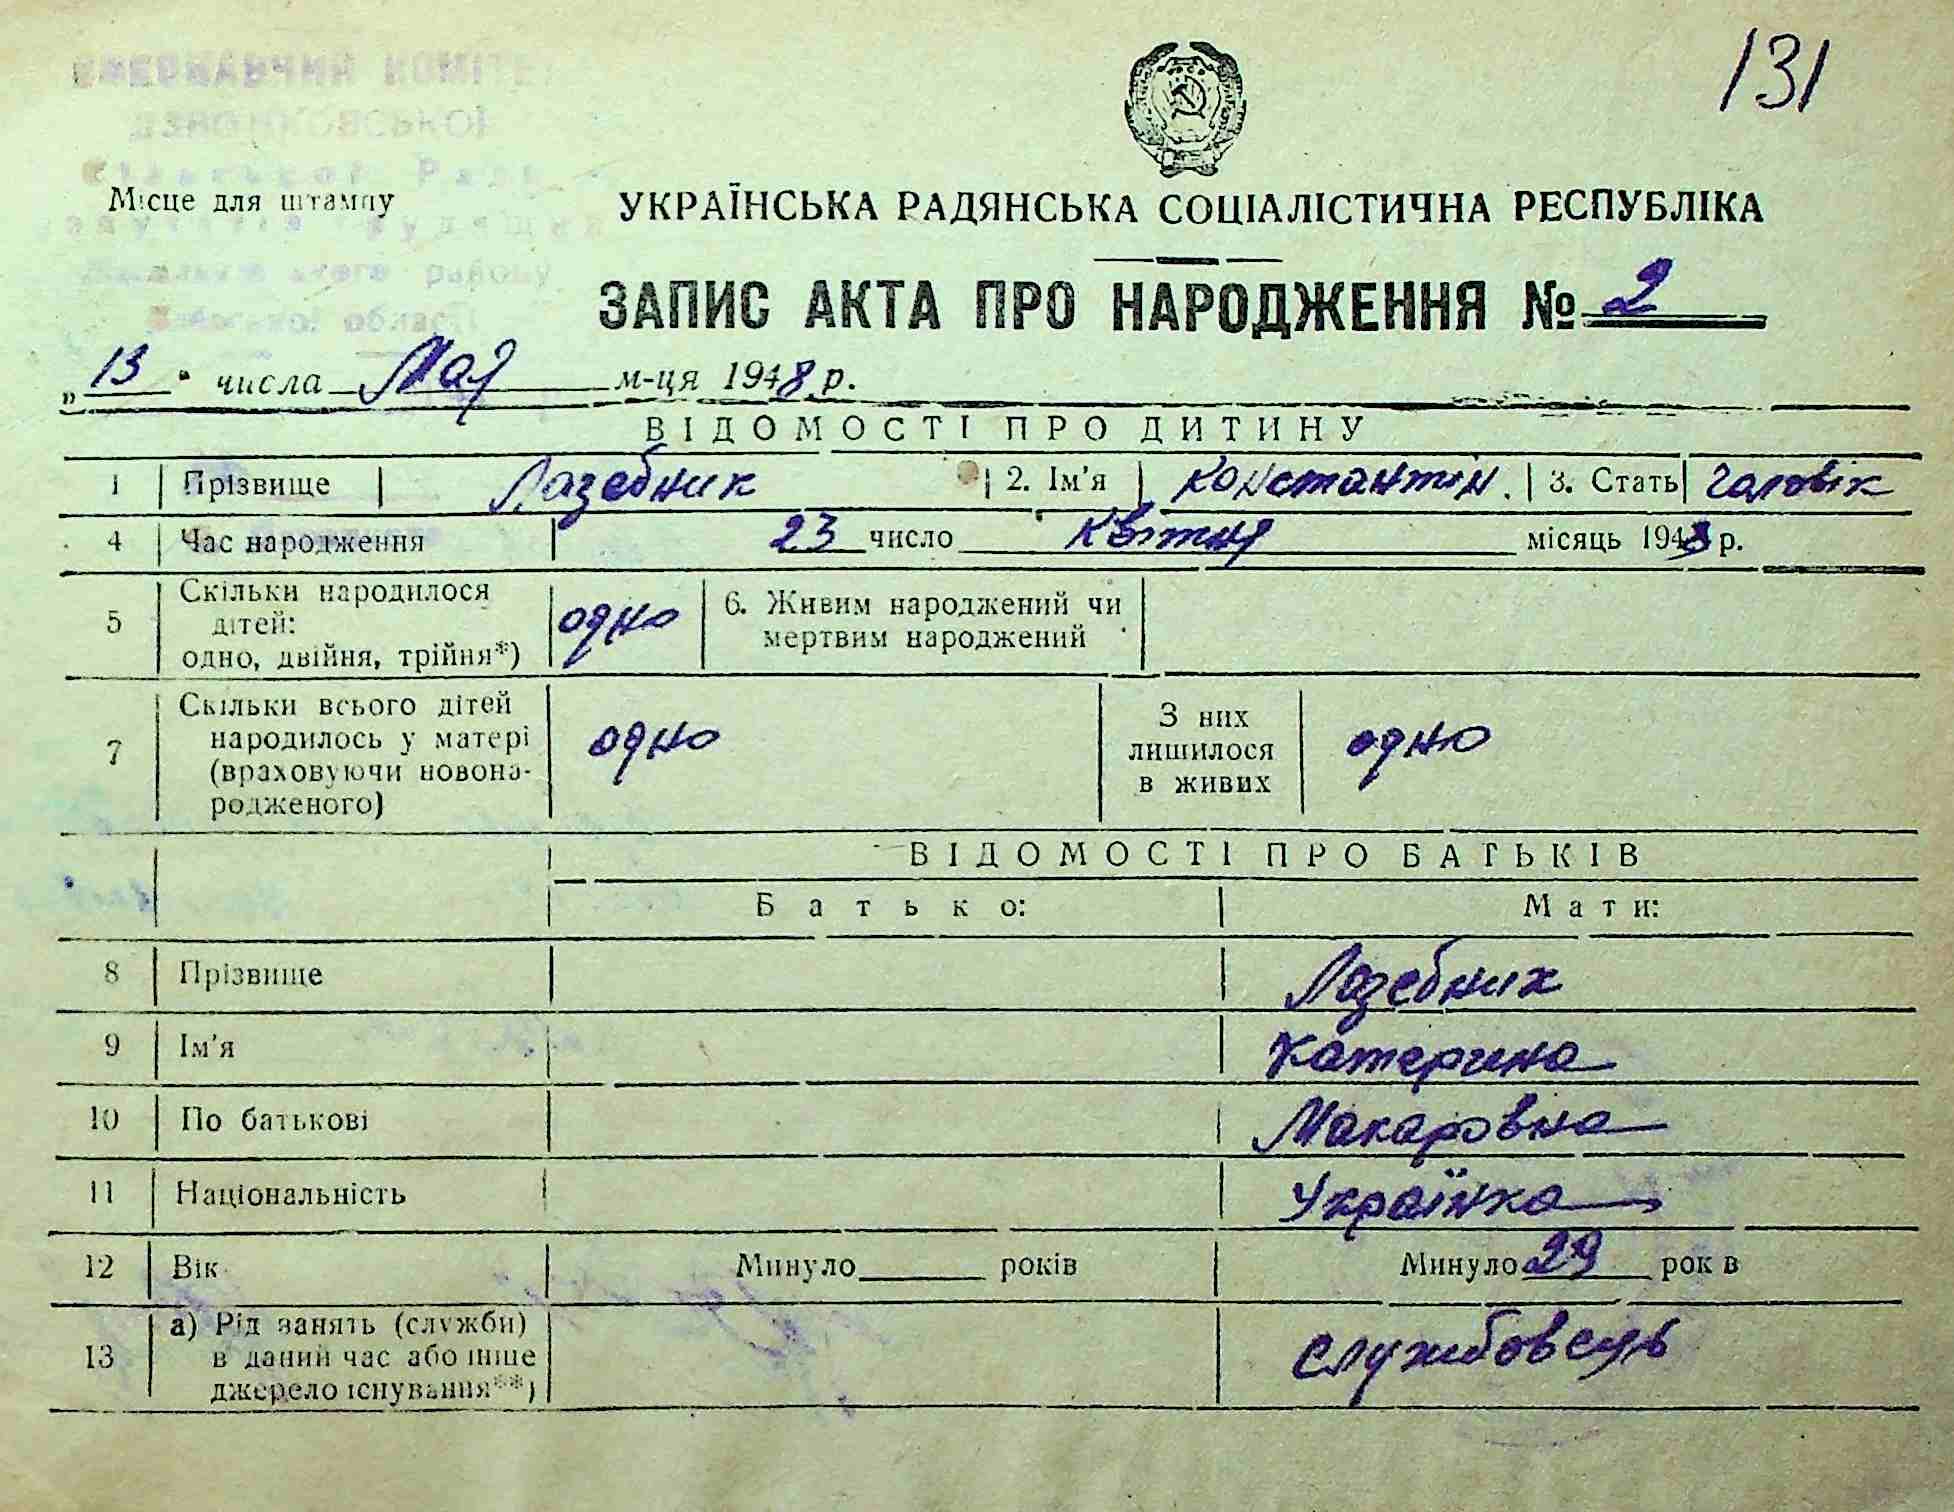 131
Місце для штампу
УКРАЇНСЬКА РАДЯНСЬКА СОЦІАЛІСТИЧНА РЕСПУБЛІКА
ЗАПИС АКТА ПРО НАРОДЖЕННЯ № 2
„ 13 " числа Мая м-ця 1948 р.
ВІДОМОСТІ ПРО ДИТИНУ
1 Прізвище Лазебник 2. Ім'я Константін. 3. Стать Чоловік
4 Час народження 23 число Квітня місяць 1948 р.
5 Скільки народилося дітей: одно, двійня, трійня*) одно 6. Живим народжений чи мертвим народжений
7 Скільки всього дітей народилось у матері (враховуючи новонародженого) одно З них лишилося в живих одно
ВІДОМОСТІ ПРО БАТЬКІВ
Батько: Мати:
8 Прізвище Лазебник
9 Ім'я Катерина
10 По батькові Макаровна
11 Національність Українка
12 Вік Минуло років Минуло 29 рок в
13 а) Рід занять (служби) в даний час або інше джерело існування**) службовець